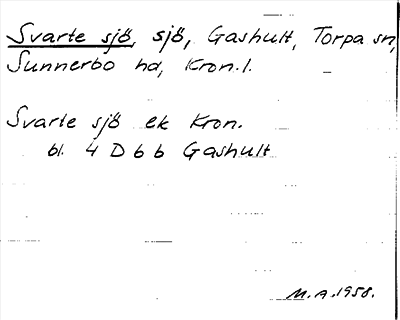 Svarte sjö, sjö, Gashult, Torpa sn,
Sunnerbo hd, Kron. l.
Svarte sjö ek Kron.
bl. 4 D 6 b Gashult
M.A. 1958.